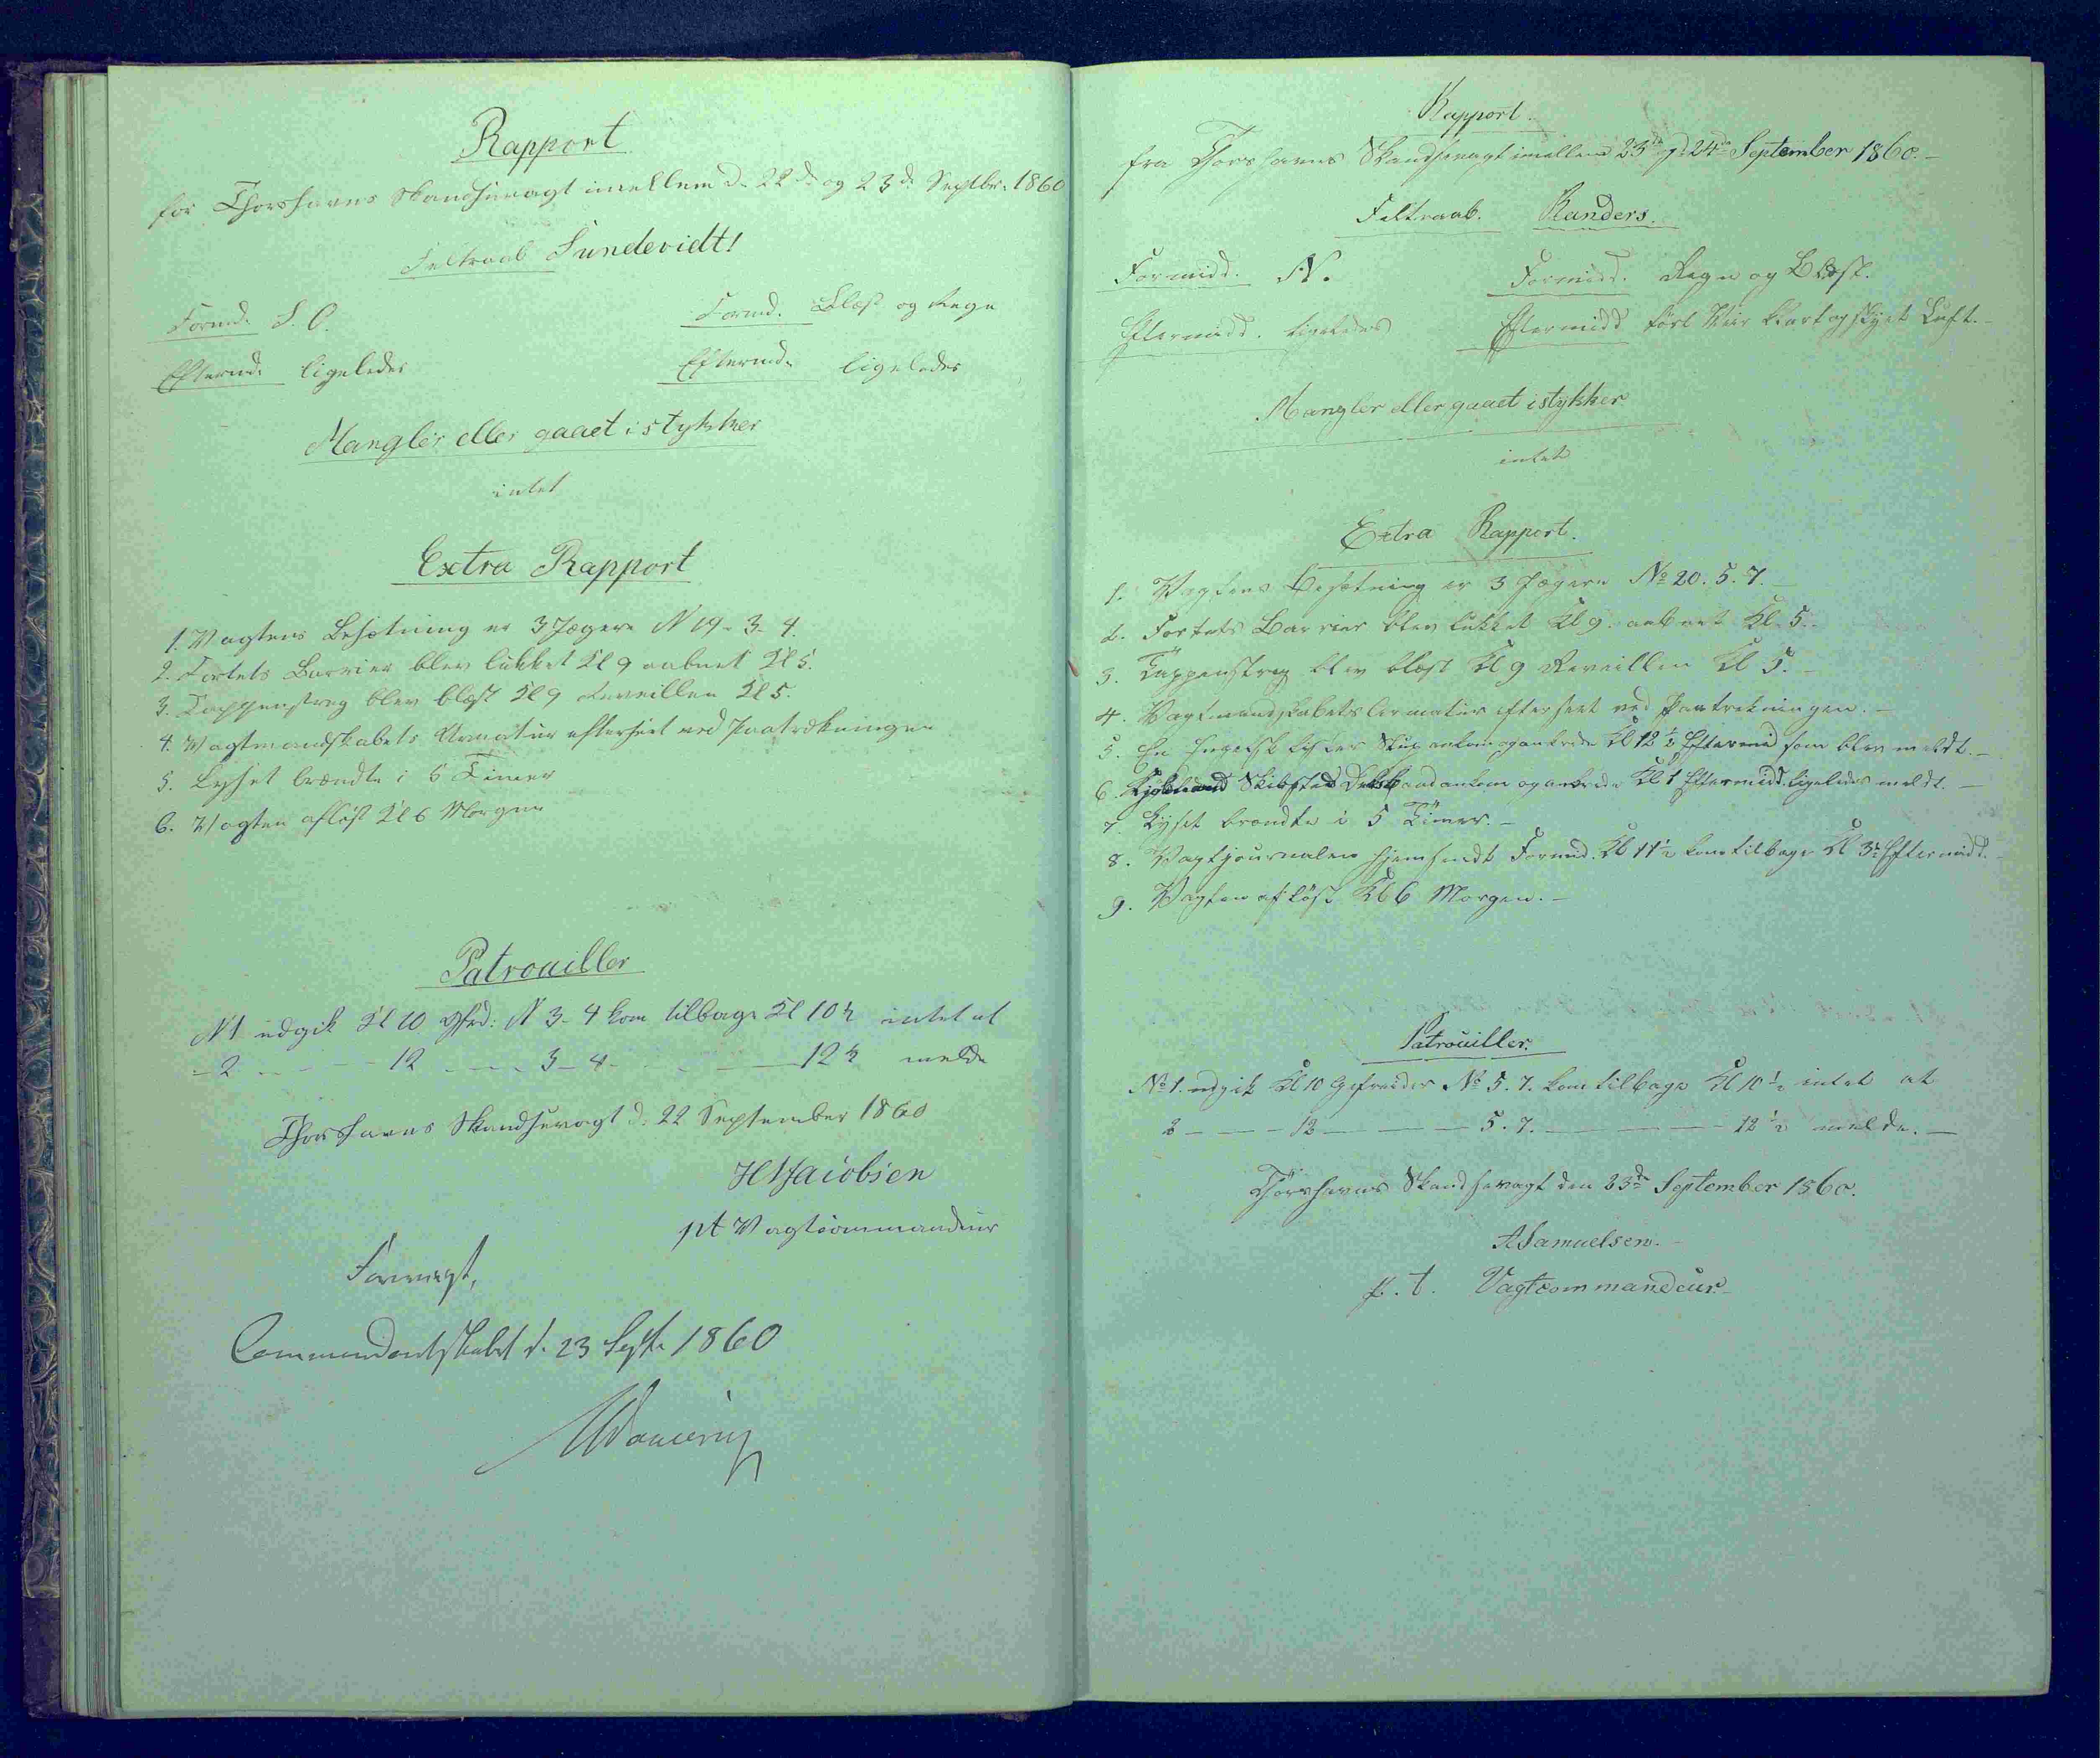 Rapport
for Thorshavns Skandsevagt imellem d. 22de og 23de Septbr. 1860
Feltraab Sundevidt!
Formd. S. O. Formd. Blæst og Regn
Eftermd. ligeledes Eftermd. ligeledes
Mangler eller gaaet istykker
intet
Extra Rapport
1. Vagtens Besætning er 3 Jægere N 19-3-4.
2. Fortets Barrier blev lukket Kl 9 aabnet Kl 5.
3. Tappenstreg blev blæst Kl 9 Reveillen Kl 5.
4. Vagtmandskabets Armatur efterseet ved Paatrækningen
5. Lyset brændte i 5 Timer
6. Vagten afløst Kl 6 Morgen
Patrouiller
N 1 udgik Kl 10 Gfrd: N 3-4 kom tilbage Kl 10½ intet at
- 2 - - - 12 - - - 3-4 - - - 12½ melde
Thorshavns Skandsevagt d. 22 September 1860
HJacobsen
pt Vagtcommandeur
Forevist,
Commandantskabet d. 23 Septr 1860
Rapport.
fra Thorshavns Skandsevagt imellem 23de og 24de September 1860.-
Feltraab. Randers.
Formidd. N. Formidd. Regn og Blæst.
Eftermidd. ligeledes Eftermidd klart og skyet Luft.-
Mangler eller gaaet istykker
intet
Extra Rapport.
1. Vagtens Besætning er 3 Jægere No 20. 5. 7.-
2. Fortets Barrier blev lukket Kl 9. aabnet Kl. 5.-
3. Tappenstreg blev blæst Kl 9 Reveillen Kl 5.-
4. Vagtmandskabets Armatur efterseet ved Paatrækningen.-
5. En Engelsk Fisker Slup ankom og ankrede Kl 12½ Efterm som blev meldt.-
6. Skibsted ankom og ankrede Kl 1 Eftermidd. ligeledes meldt.-
7. Lyset brændte i 5 Timer.-
8. Vagtjournalen hjemsendt Formd. Kl 11½ kom tilbage Kl 3½ Eftermidd.
9. Vagten afløst Kl 6 Morgen.-
Patrouiller.
No 1. udgik Kl 10 Gefreider No 5. 7. kom tilbage Kl 10½ intet at
2 - - - 12 - - - 5. 7. - - - 12½ melde.-
Thorshavns Skandsevagt den 23de September 1860.
ASamuelsen.-
p. t. Vagtcommandeur.